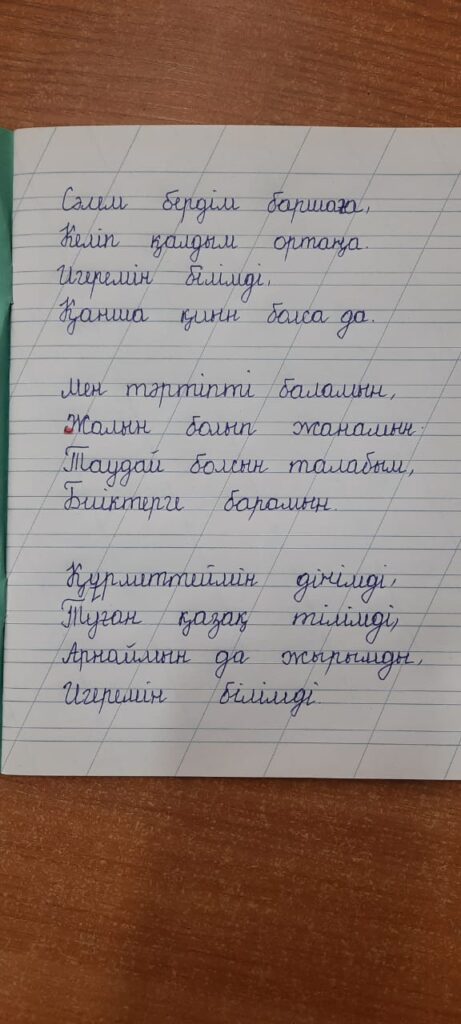 Сәлем бердім баршаға,
Келіп қалдым ортаңа.
Игеремін білімді,
Қанша қиын болса да.
Мен тәртіпті баламын,
Жалын болып жанамын.
Таудай болсын талабым,
Биіктерге барамын.
Құрметтеймін дінімді,
Туған қазақ тілімді,
Арнаймын да жырымды,
Игеремін білімді.